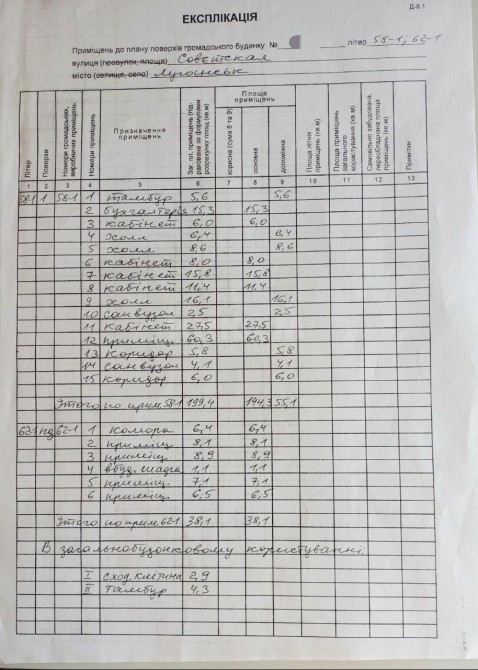 Д-6.1
ЕКСПЛІКАЦІЯ
Приміщень до плану поверхів громадського будинку № літер 58-1; 62-1
вулиця (провулок, площа) Советская
місто (селище, село) Луганськ
Літер
Поверхи
Номери громадських, виробничих приміщень
Номери приміщень
Призначення приміщень
Заг. пл. приміщень (підрахована за формулами розрахунку площ (кв.м)
Площа приміщень
корисна (сума 8 та 9)
основна
допоміжна
Площа літніх приміщень (кв.м)
Площа приміщень загального користування (кв.м)
Самовільно забудована, переобладнана площа приміщень (кв.м)
Примітки
1 2 3 4 5 6 7 8 9 10 11 12 13
58-1 1 58-1 1 тамбур 5,6 5,6
2 бухгалтерія 15,3 15,3
3 кабінет 6,0 6,0
4 холл 6,4 6,4
5 холл 8,6 8,6
6 кабінет 8,0 8,0
7 кабінет 15,8 15,8
8 кабінет 11,4 11,4
9 холл 16,1 16,1
10 санвузол 2,5 2,5
11 кабінет 27,5 27,5
12 приміщ. 60,3 60,3
13 коридор 5,8 5,8
14 санвузол 4,1 4,1
15 коридор 6,0 6,0
Утого по прим. 58-1 199,4 144,3 55,1
62-1 пд 62-1 1 комора 6,4 6,4
2 приміщ. 8,1 8,1
3 приміщ. 8,9 8,9
4 вбуд. шафа 1,1 1,1
5 приміщ. 7,1 7,1
6 приміщ. 6,5 6,5
Утого по прим. 62-1 38,1 38,1
В загальнобудонковому користуванні:
I сход. клітина 2,9
II тамбур 4,3